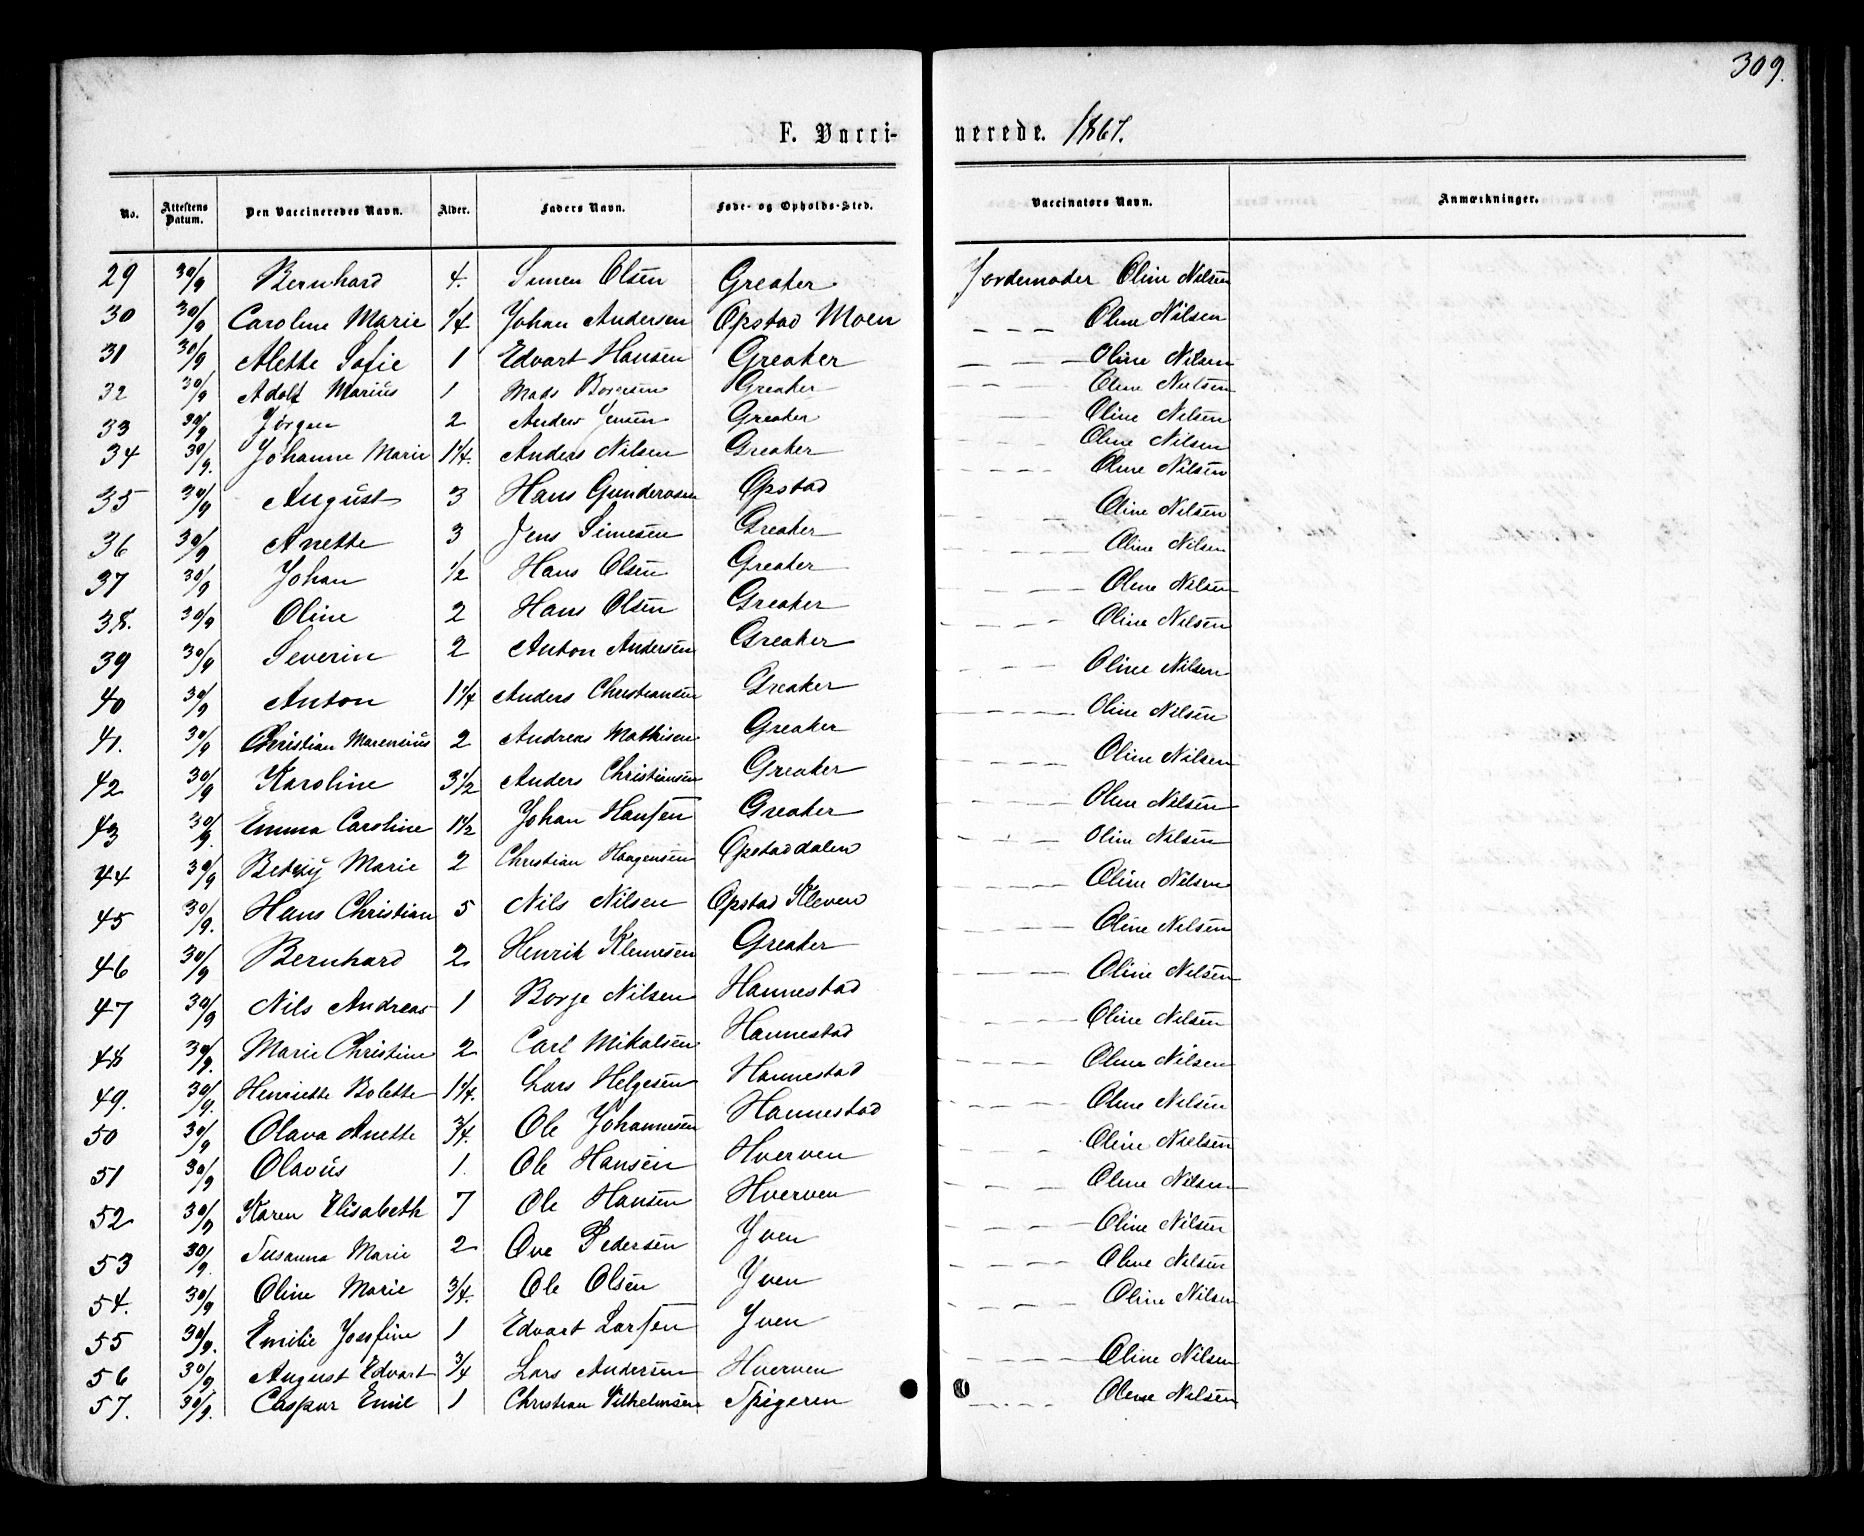 309.
F. Vacci- nerede. 1867.
No. Attestens Datum. Den Vaccineredes Navn. Alder. Faders Navn. Føde- og Opholds-Sted. Vaccinators Navn. Anmærkninger.
29 30/9 Bernhard 4. Simen Olsen Greaker Jordemoder Oline Nilsen
30 30/9 Caroline Marie 1/4 Johan Andersen Opstad Moen — — — Oline Nilsen
31 30/9 Alette Sofie 1 Edvart Hansen Greaker — — — Oline Nilsen
32 30/9 Adolf Marius 1 Mads Greaker — — — Oline Nielsen
33 30/9 Jørgen 2 Anders Jensen Greaker — — — Oline Nilsen
34 30/9. Johanne Marie 1 1/4. Anders Nilsen Greaker — — — Oline Nilsen
— — — Oline Nilsen
35 30/9 August 3 Hans Gundersen Opstad — — — Oline Nilsen
36 30/9 Anette 3 Jens Simesen Greaker — — — Oline Nilsen
37 30/9 Johan 1/2 Hans Olsen Greaker — — — Oline Nilsen
38. 30/9 Oline 2 Hans Olsen Greaker — — — Oline Nilsen
39 30/9 Severin 2 Anton Andersen Greaker — — — Oline Nilsen
40 30/9 Anton 1 1/4 Anders Christiansen Greaker — — — Oline Nilsen
41. 30/9 Christian 2 Andreas Mathisen Greaker — — — Oline Nilsen
42 30/9 Karoline 3 1/2 Anders Christiansen Greaker — — — Oline Nilsen
43 30/9. Emma Caroline 1 1/2 Johan Hansen Greaker — — — Oline Nilsen
44 30/9 Betzy Marie 2 Christian Haagensen Opstaddalen — — — Oline Nilsen
45 30/9. Hans Christian 5 Nils Nilsen Opstad Kleven — — — Oline Nilsen
46 30/9 Bernhard 2 Henrik Klemesen Greaker — — — Oline Nilsen
47 30/9 Nils Andreas 1 Borge Nilsen Hannestad — — — Oline Nilsen
48 30/9. Marie Christine 2 Carl Mikalsen Hannestad — — — Oline Nilsen
49. 30/9. Henriette Bolette 1 1/4. Lars Helgesen Hannestad — — — Oline Nilsen
50 30/9 Olava Anette 3/4. Ole Johannesen Hannestad — Oline Nielsen
51 30/9 Olavus 1. Ole Hansen Hverven — — — Oline Nilsen
52 30/9 Karen Elisabeth 7 Ole Hansen Hverven — — — Oline Nilsen
53 30/9. Susanna Marie 2 Ove Pedersen Yven — — — Oline Nilsen
54. 30/9 Oline Marie 3/4. Ole Olsen Yven — — — Oline Nilsen
55 30/9. Emilie Josefine 1 Edvart Larsen Yven — — — Oline Nilsen
56 30/9 August Edvart 3/4 Lars Andersen Hverven
57. 30/9. Caspar Emil 1 Christian Vilhelmsen Spigeren — — — Oline Nilsen